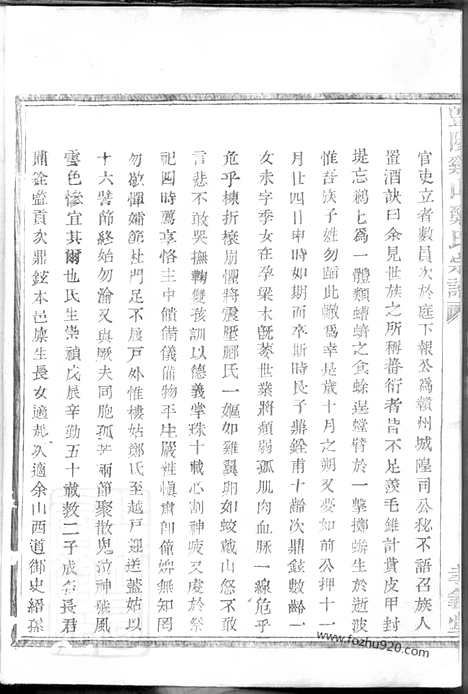 官吏立者數員次於庭下報公為贛州城隍司公秘不語召族人
置酒訣曰余見世族之所稱蕃衍者皆不足羨毛錐計貴皮甲封
堤忘鵜七為一體類蜻蜻之食蜍逞螳臂於一擊擲蛾生於逝波
惟吾族子姓勿蹈此轍為幸是歲十月之朔又夢如信公抑十一
月廿四日申時如期而卒斯時長子鼎銓甫十齡次鼎鉉數齡一
女未字季女在孕梁木旣萎世業將頹弱孤肌肉血脈一線危乎
危乎棟折榱崩懼將震壓鄒氏一嫗如雞翼卵如蛟戴山怨不敢
言悲不敢哭撫鞠雙孩訓以德義掌珠十載心剖神疲又虔於祭
祀四時薦享恪主中饋備儀備物平生嚴雅愼肅卽僮婢無知罔
勿歛憚孀節杜門足不履戶外惟樓姑鄒氏至越戶迎送蓋姑以
十六誓節終始勿諭又與厥夫同胞孤苦兩節聚散鬼泣神號風
雲色慘宜其爾也氏生崇禎戊辰辛勤五十載教二子成名長君
鼎銓監貢次鼎鉉本邑庠生長女適彪次適余山西道御史縉孫
豐陵鄒氏宗譜
孝義堂
www.fozhu920.com